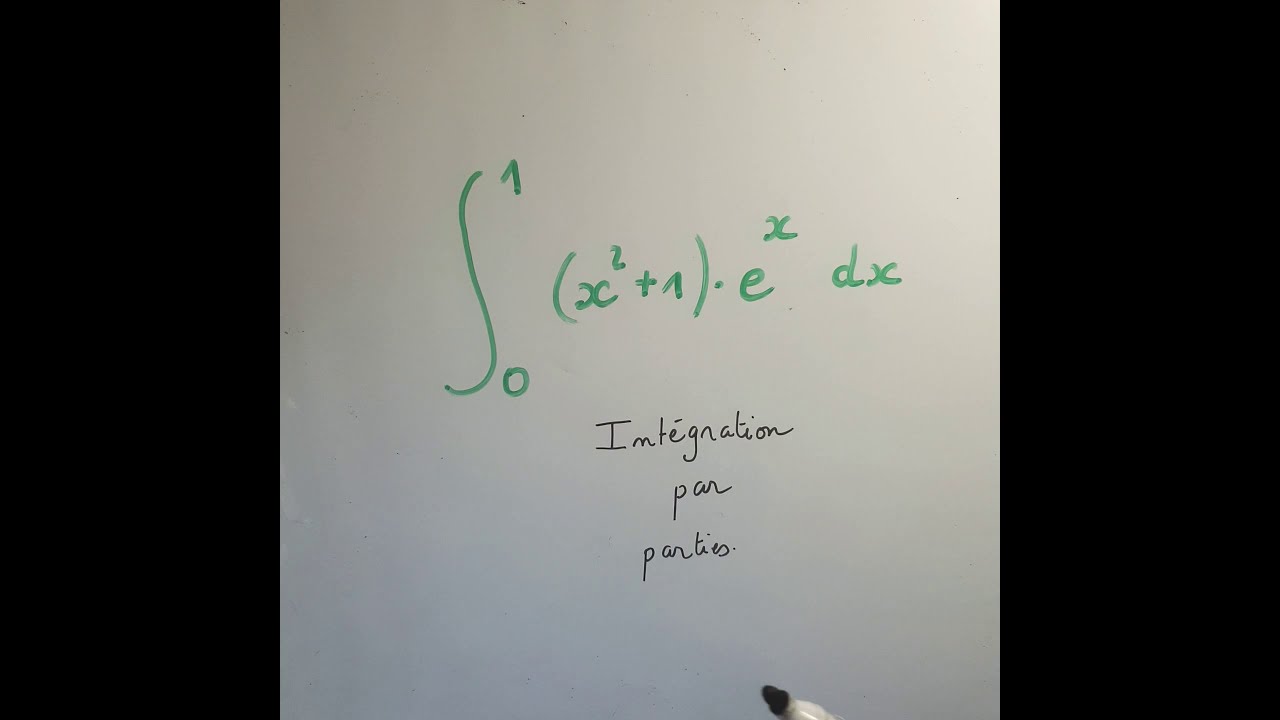 ∫₀¹ (x²+1)·eˣ dx
Intégration
par
parties.